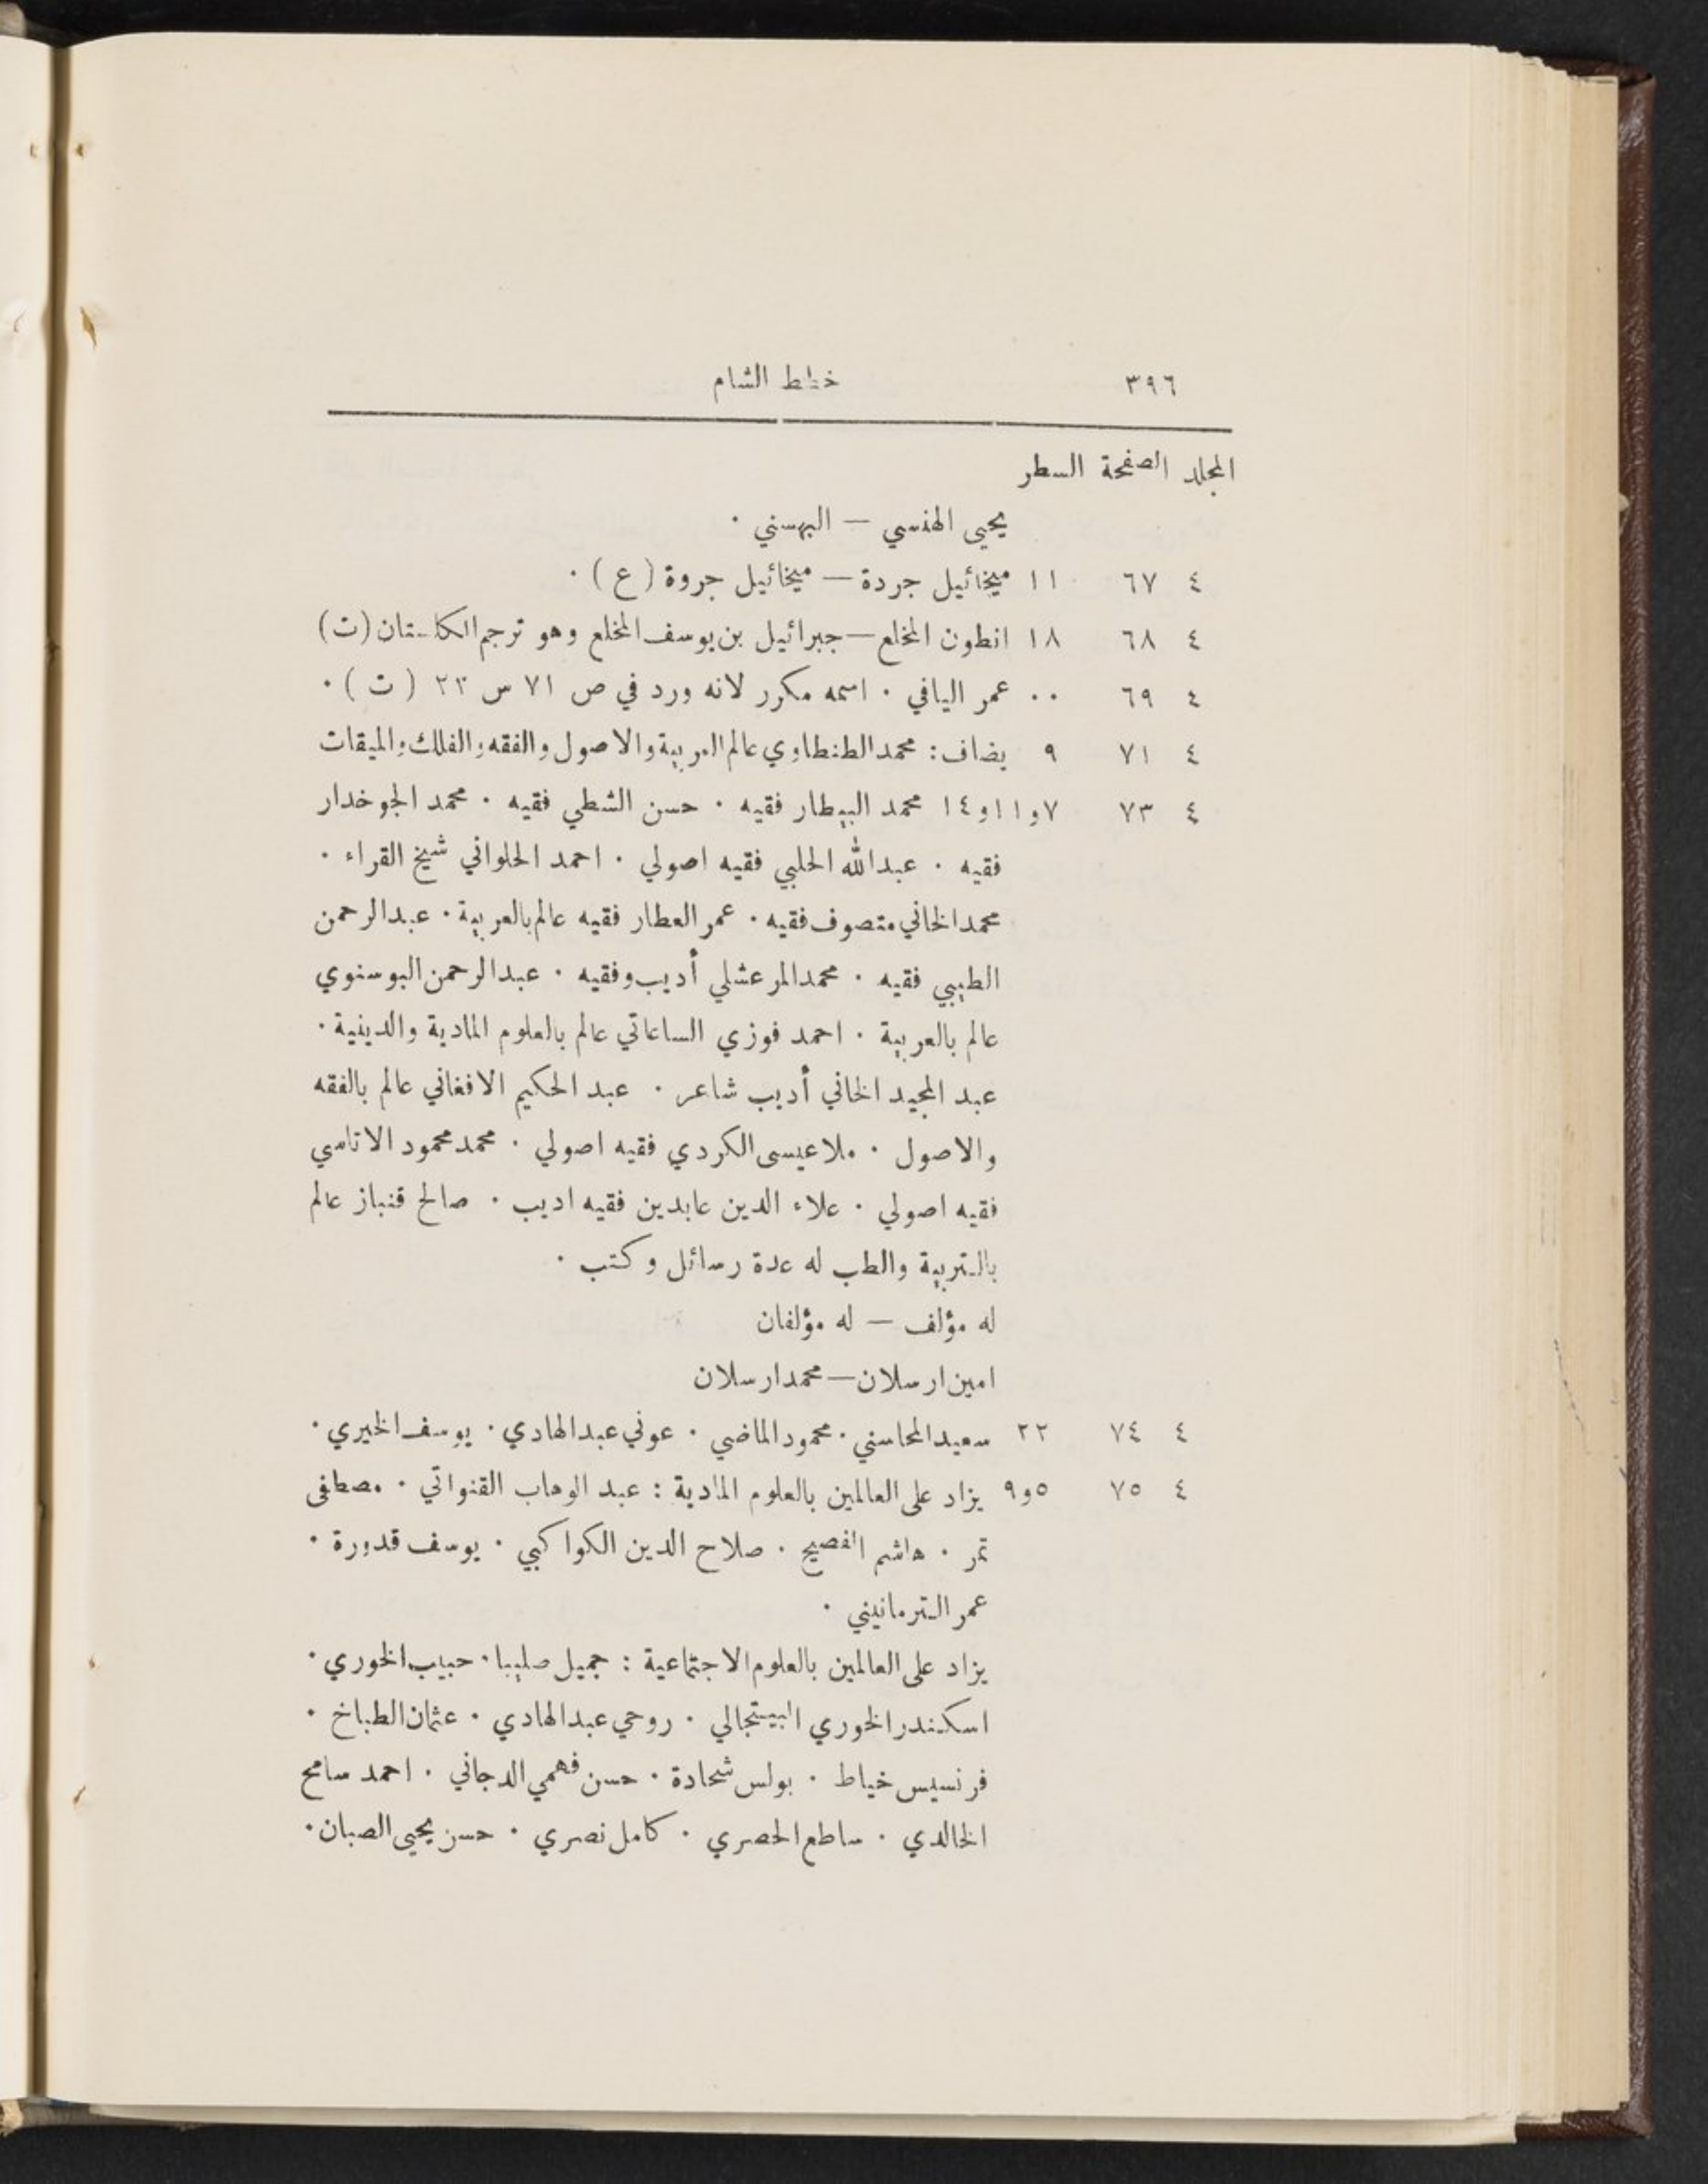 ٣٩٦ خطط الشام
المجلد الصفحة السطر
يحيى الهنسي — البهسني ·
٤ ٦٧ ١١ ميخائيل جردة — ميخائيل جروة (ع) ·
٤ ٦٨ ١٨ انطون المخلع — جبرائيل بن يوسف المخلع وهو ترجم الكلستان (ت)
٤ ٦٩ ·· عمر اليافي · اسمه مكرر لانه ورد في ص ٧١ س ٢٣ (ت) ·
٤ ٧١ ٩ يضاف : محمد الطنطاوي عالم العربية والاصول والفقه والفلك والميقات
٤ ٧٣ ٧و١١و١٤ محمد البيطار فقيه · حسن الشطي فقيه · محمد الجوخدار
فقيه · عبد الله الحلبي فقيه اصولي · احمد الحلواني شيخ القراء ·
محمد الخاني متصوف فقيه · عمر العطار فقيه عالم بالعربية · عبد الرحمن
الطيبي فقيه · محمد المرعشلي أديب وفقيه · عبد الرحمن البوسنوي
عالم بالعربية · احمد فوزي الساعاتي عالم بالعلوم المادية والدينية ·
عبد المجيد الخاني أديب شاعر · عبد الحكيم الافغاني عالم بالفقه
والاصول · ملا عيسى الكردي فقيه اصولي · محمد محمود الاتاسي
فقيه اصولي · علاء الدين عابدين فقيه اديب · صالح قنباز عالم
بالتربية والطب له عدة رسائل وكتب ·
له مؤلف — له مؤلفان
امين ارسلان — محمد ارسلان
٤ ٧٤ ٢٢ سعيد المحاسني · محمود الماضي · عوني عبد الهادي · يوسف الخيري ·
٤ ٧٥ ٥و٩ يزاد على العالمين بالعلوم المادية : عبد الوهاب القنواتي · مصطفى
تمر · هاشم الفصيح · صلاح الدين الكواكبي · يوسف قدورة ·
عمر الترمانيني ·
يزاد على العالمين بالعلوم الاجتماعية : جميل صليبا · حبيب الخوري ·
اسكندر الخوري البيتجالي · روحي عبد الهادي · عثمان الطباخ ·
فرنسيس خياط · بولس شحادة · حسن فهمي الدجاني · احمد سامح
الخالدي · ساطع الحصري · كامل نصري · حسن يحيى الصبان ·